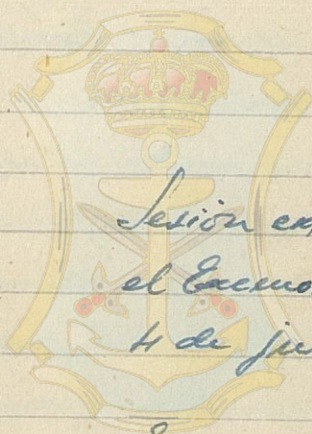 Sesión ex
el Excmo
4 de ju